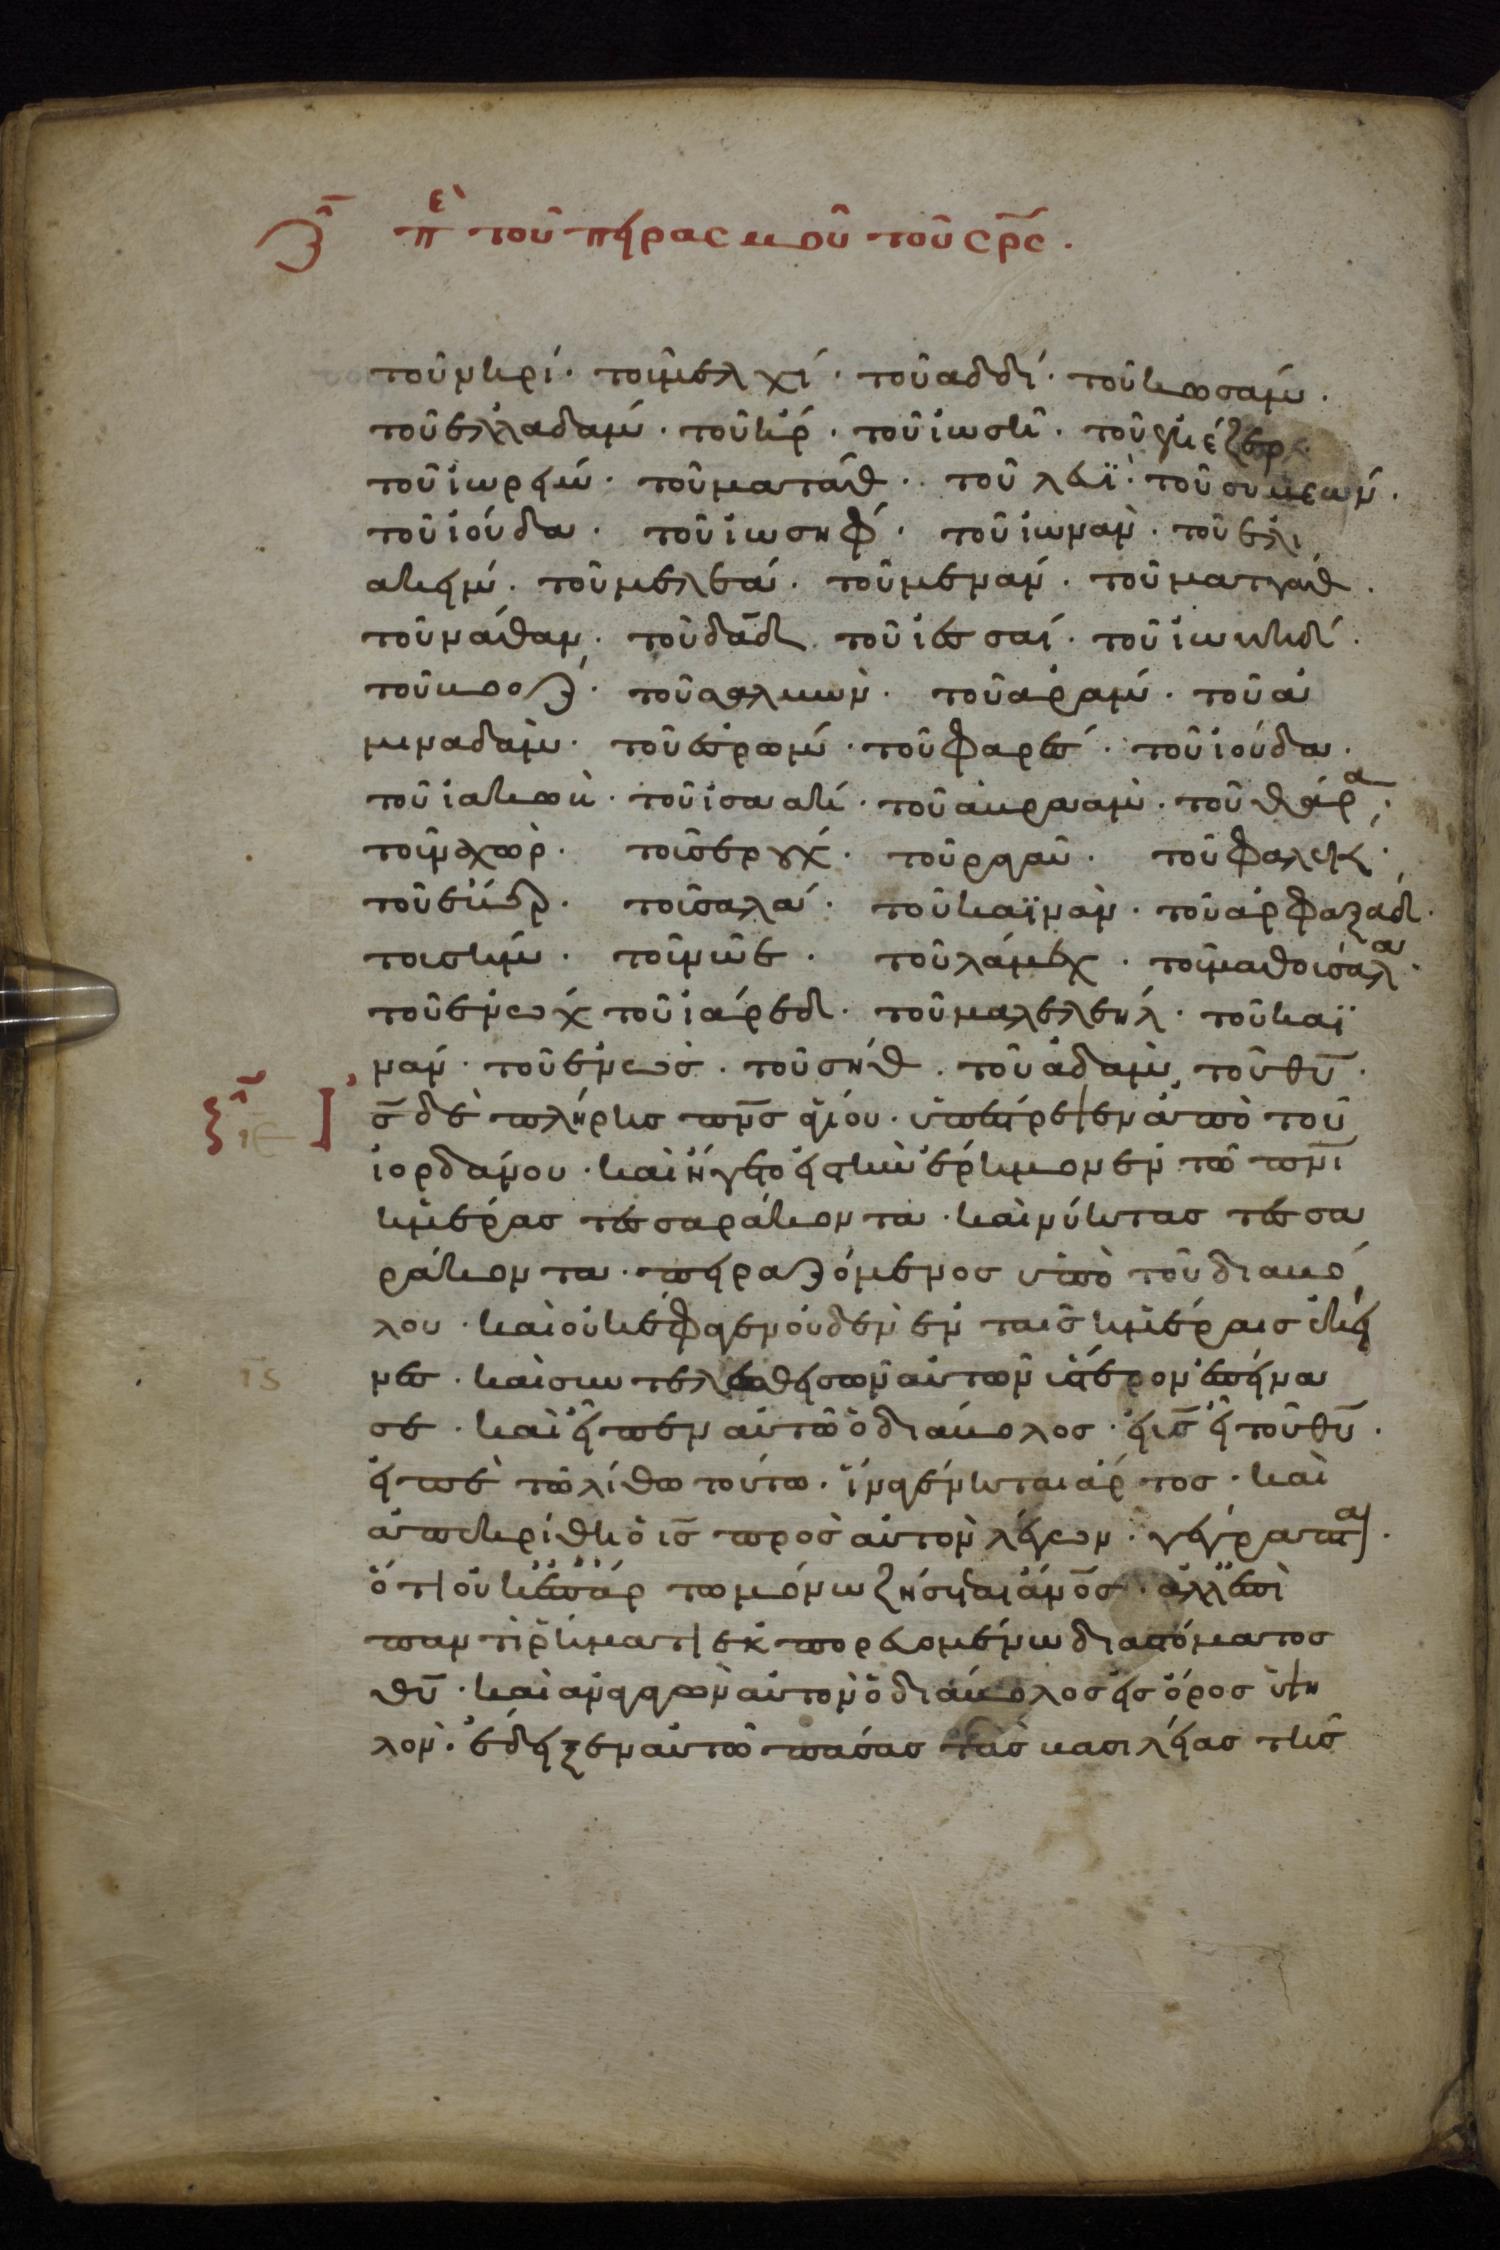 ζ ̑ πὲ τοῦ πειρασμοῦ τοῦ σρ̅ς .
τοῦ νηρί · τοῦ μελχί · τοῦ αδδί · τοῦ κωσάμ .
τοῦ ελλαδάμ · τοῦ ήρ · τοῦ ἰωσῆ · τοῦ
τοῦ ἰωρείμ · τοῦ ματάθ · τοῦ λευΐ · τοῦ συμεών .
τοῦ ἰούδα · τοῦ ἰωσήφ · τοῦ ἰωνὰν · τοῦ ελι
ακείμ · τοῦ μελεά · τοῦ μενάν · τοῦ ματταθ .
τοῦ νάθαν · τοῦ δᾱδ τοῦ ἰεσσαί · τοῦ ἰωβήδ .
τοῦ βοόζ · τοῦ σαλμὼν · τοῦ ἀράμ · τοῦ ἀ
μιναδὰμ · τοῦ ἐσρώμ · τοῦ φαρές · τοῦ ἰούδα .
τοῦ ἰακὼβ · τοῦ ἰσαάκ · τοῦ ἀβραὰμ · τοῦ θάρα ·
τοῦ ναχὼρ · τοῦ σερούχ · τοῦ ραγαῦ · τοῦ φαλέκ ·
τοῦ ἕβερ · τοῦ σαλά · τοῦ καϊνὰν · τοῦ ἀρφαξάδ .
τοῦ σήμ · τοῦ νῶε · τοῦ λάμεχ · τοῦ μαθουσάλα .
τοῦ ἐνώχ τοῦ ἰάρεδ · τοῦ μαλελεήλ · τοῦ καϊ
νάν · τοῦ ἐνώς · τοῦ σήθ . τοῦ ἀδὰμ , τοῦ θ̅υ̅ .
ξ ̑ ιε ι̅ς̅ δὲ πλήρης π̅ν̅ς ἁγίου · ὑπέστρεψεν ἀπὸ τοῦ
ἰορδάνου · καὶ ἤγετο εἰς τὴν ἔρημον ἐν τῶ π̅ν̅ι
ἡμέρας τεσσαράκοντα · καὶ νύκτας τεσσα
ράκοντα · πειραζόμενος ὑπὸ τοῦ διαβό
λου · καὶ οὐκ ἔφαγεν οὐδὲν ἐν ταῖς ἡμέραις ἐκεί
ις ναις · καὶ συντελεσθεισῶν αὐτῶν ὕστερον ἐπείνα
σε · καὶ εἶπεν αὐτῶ ὁ διάβολος · εἰ υ̅ς̅ εἶ τοῦ θ̅υ̅ .
εἰπὲ τῶ λίθω τούτω · ἵνα γένηται ἄρτος · καὶ
ἀπεκρίθη ὁ ι̅ς̅ πρὸς αὐτὸν λέγων · γέγραπται .
ὅτι οὐκ ἐπ' ἄρτω μόνω ζήσεται ἄν̅ο̅ς · ἀλλ' ἐπὶ
παντὶ ῥήματι ἐκπορευομένω διὰ στόματος
θ̅υ̅ · καὶ ἀναγαγὼν αὐτὸν ὁ διάβολος εἰς ὄρος ὑψη
λὸν · ἔδειξεν αὐτῶ πάσας τὰς βασιλείας τῆς